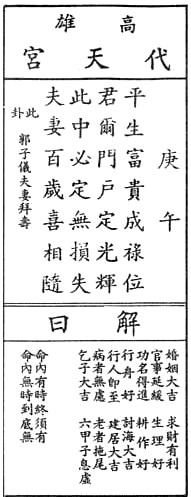 高雄
代天宮
庚午
平生富貴成祿位
君爾門戶定光輝
此中必定無損失
夫妻百歲喜相隨
此卦 郭子儀夫妻拜壽
解曰
婚姻大吉 求財有利
官事延緩 生理好
功名得進 耕作好
行舟好 討海大吉
行人即至 建居大吉
病者無虞 老者拖尾
乞子大吉 六甲子息虛
命內有時終須有
命內無時到底無